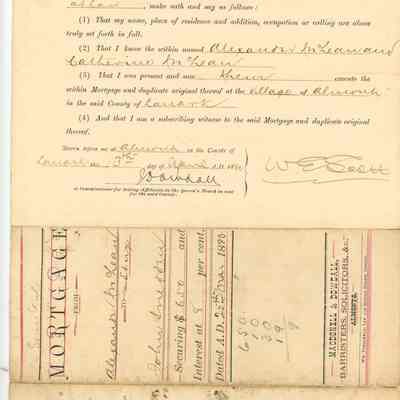 make oath and say as follows:
(1) That my name, place of residence and addition, occupation or calling are above
truly set forth in full.
(2) That I know the within named Alexander McLean and
Catherine McLean
(3) That I was present and saw them execute the
within Mortgage and duplicate original thereof at the village of Almonte
in the said County of Lanark
(4) And that I am a subscribing witness to the said Mortgage and duplicate original
thereof.
Sworn before me at Almonte in the County of
Lanark this 3rd day of April
J Dowdall
W E Scott
A Commissioner for taking Affidavits in the Queen's Bench in and
for the said County.
MORTGAGE
FROM
Alexander McLean
TO
John
Securing $600 and
Interest at 8 per cent.
Dated A.D. 25th Mar 1893
MACDONELL & DOWDALL,
BARRISTERS, SOLICITORS, &c.,
ALMONTE.